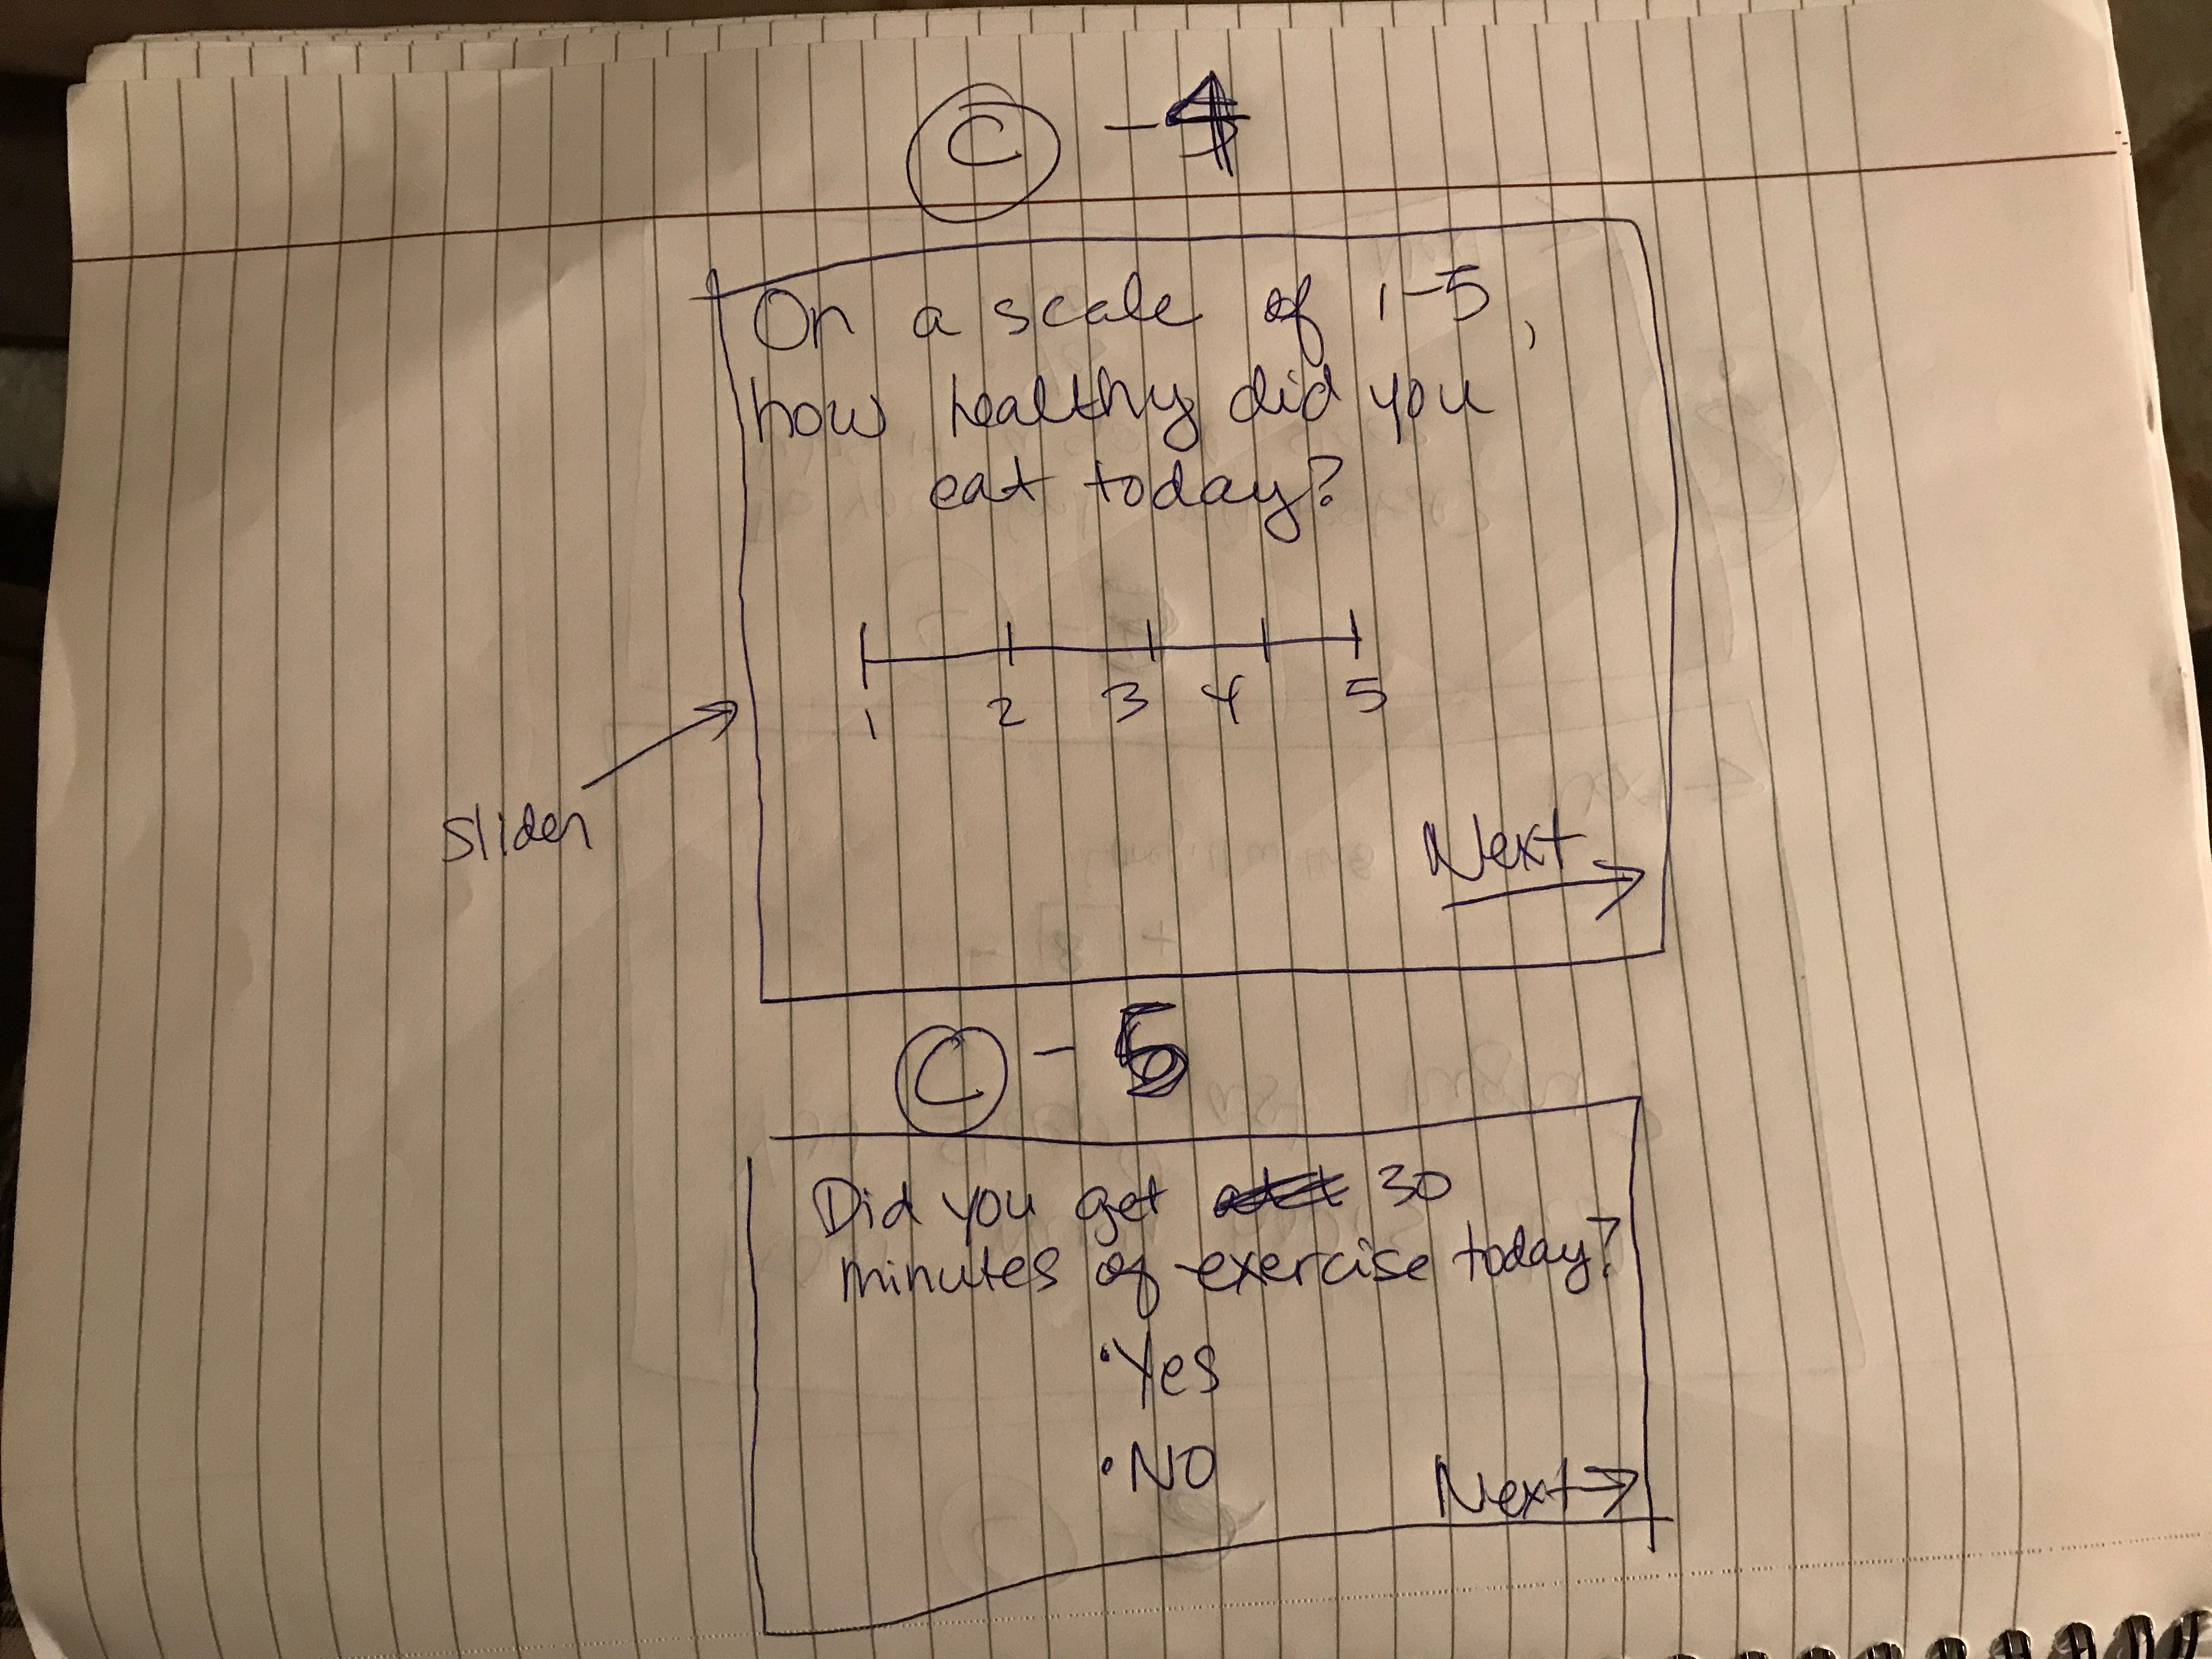 C - 4
On a scale of 1-5,
how healthy did you
eat today?
1 2 3 4 5
slider
Next
C - 5
Did you get 30
minutes of exercise today?
• Yes
• NO
Next